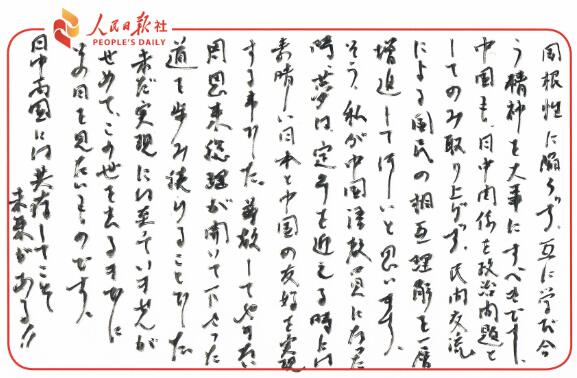 人民日报社
PEOPLE'S DAILY
国根性に陥らず、互に学び合
う精神を大事にすべきです。
中国も、日中関係を政治問題と
してのみ取り上げず、民間交流
による国民の相互理解を一層
増進してほしいと思います。
そう、私が中国語教員になった
時、夢は、定年を迎える時には
素晴しい日本と中国の友好を実現
する事でした。尊敬してやまない
周恩来総理が開いて下さった
道を歩み続けることでした。
未だ実現には至っていませんが
せめて、この世を去るまでに
その日を見たいものです。
日中両国には共存してこそ
未来がある!!